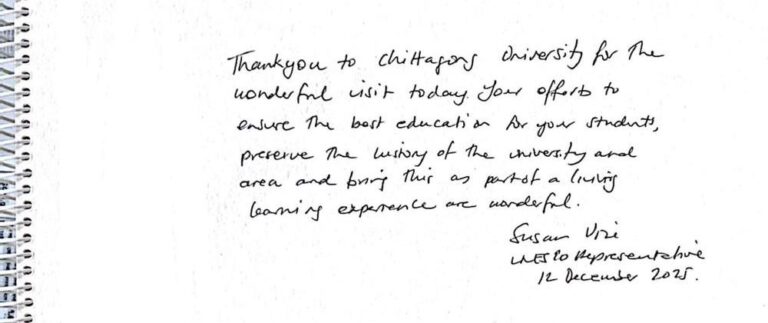 Thankyou to Chittagong University for the
wonderful visit today. Your efforts to
ensure the best education for your students,
preserve the history of the university and
area and bring this as part of a living
learning experience are wonderful.
Susan Vize
UNESCO Representative
12 December 2025.